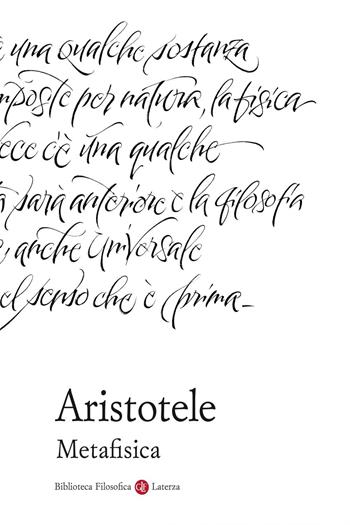 è una qualche sostanza
mposte per natura, la fisica
ece c'è una qualche
à sarà anteriore e la filosofia
e, anche universale
el senso che è prima_
Aristotele
Metafisica
Biblioteca Filosofica Laterza